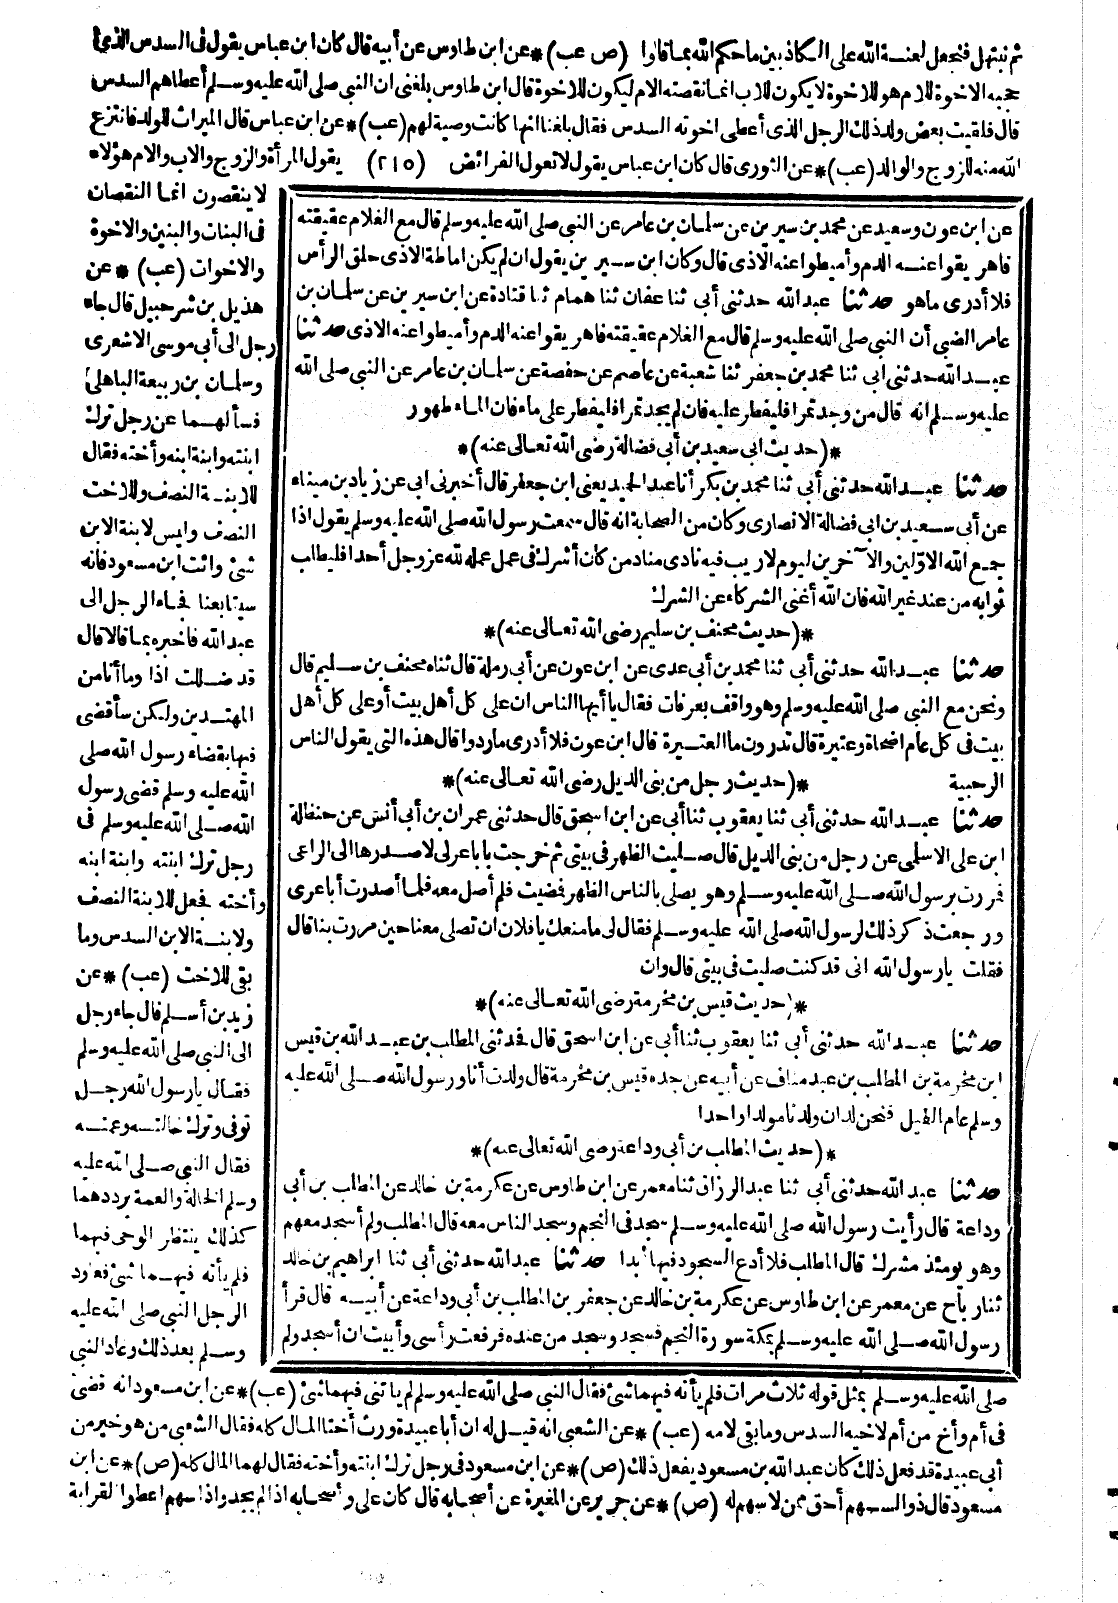 ثم نبتهل فنجعل لعنة الله على الكاذبين ما حكم الله بما قالوا (ص عب)*عن ابن طاوس عن أبيه قال كان ابن عباس يقول فى السدس الذى
حجبه الاخوة للام هو للاخوة لا يكون للاب انما نقصته الام ليكون للاخوة قال ابن طاوس بلغنى ان النبى صلى الله عليه وسلم أعطاهم السدس
قال فلقيت بعض ولد ذلك الرجل الذى أعطى اخوته السدس فقال بلغنا انها كانت وصية لهم (عب)*عن ابن عباس قال الميراث للولد فانتزع
الله منه للزوج والوالد (عب)*عن الثورى قال كان ابن عباس يقول لا تعول الفرائض (٢١٥) يقول المرأة والزوج والاب والام هؤلاء
لا ينقصون انما النقصان
فى البنات والبنين والاخوة
والاخوات (عب) *عن
هذيل بن شرحبيل قال جاء
رجل الى أبى موسى الاشعرى
وسلمان بن ربيعة الباهلى
فسألهما عن رجل ترك
ابنته وابنة ابنه وأخته فقال
للابنة النصف وللاخت
النصف وليس لابنة الابن
شئ وائت ابن مسعود فانه
سيتابعنا فجاء الرجل الى
عبد الله فاخبره بما قالا قال
قد ضللت اذا وما أنا من
المهتدين ولكن سأقضى
فيها بقضاء رسول الله صلى
الله عليه وسلم قضى رسول
الله صلى الله عليه وسلم فى
رجل ترك ابنته وابنة ابنه
وأخته فجعل للابنة النصف
ولابنة الابن السدس وما
بقى للاخت (عب) *عن
زيد بن أسلم قال جاء رجل
الى النبى صلى الله عليه وسلم
فقال يا رسول الله رجل
توفى وترك خالته وعمته
فقال النبى صلى الله عليه
وسلم الخالة والعمة يرددهما
كذلك ينتظر الوحى فيهما
فلم يأته فيهما شئ فعاود
الرجل النبى صلى الله عليه
وسلم بعد ذلك وعاد النبى
عن ابن عون وسعيد عن محمد بن سيرين عن سلمان بن عامر عن النبى صلى الله عليه وسلم قال مع الغلام عقيقته
فاهريقوا عنه الدم وأميطوا عنه الاذى قال وكان ابن سيرين يقول ان لم يكن اماطة الاذى حلق الرأس
فلا أدرى ما هو حدثنا عبد الله حدثنى أبى ثنا عفان ثنا همام ثنا قتادة عن ابن سيرين عن سلمان بن
عامر الضبى أن النبى صلى الله عليه وسلم قال مع الغلام عقيقته فاهريقوا عنه الدم وأميطوا عنه الاذى حدثنا
عبد الله حدثنى ابى ثنا محمد بن جعفر ثنا شعبة عن عاصم عن حفصة عن سلمان بن عامر عن النبى صلى الله
عليه وسلم انه قال من وجد تمرا فليفطر عليه فان لم يجد تمرا فليفطر على ماء فان الماء طهور
*(حديث ابى سعيد بن أبى فضالة رضى الله تعالى عنه)*
حدثنا عبد الله حدثنى أبى ثنا محمد بن بكر أنا عبد الحميد يعنى ابن جعفر قال أخبرنى ابى عن زياد بن ميناء
عن أبى سعيد بن ابى فضالة الانصارى وكان من الصحابة انه قال سمعت رسول الله صلى الله عليه وسلم يقول اذا
جمع الله الاولين والآخرين ليوم لا ريب فيه نادى مناد من كان أشرك فى عمل عمله لله عز وجل أحدا فليطلب
ثوابه من عند غير الله فان الله أغنى الشركاء عن الشرك
*(حديث مخنف بن سليم رضى الله تعالى عنه)*
حدثنا عبد الله حدثنى أبى ثنا محمد بن أبى عدى عن ابن عون عن أبى رملة قال ثناه مخنف بن سليم قال
ونحن مع النبى صلى الله عليه وسلم وهو واقف بعرفات فقال يا أيها الناس ان على كل أهل بيت أو على كل أهل
بيت فى كل عام اضحاة وعتيرة قال تدرون ما العتيرة قال ابن عون فلا أدرى ما ردوا قال هذه التى يقول الناس
الرجبية *(حديث رجل من بنى الديل رضى الله تعالى عنه)*
حدثنا عبد الله حدثنى أبى ثنا يعقوب ثنا أبى عن ابن اسحق قال حدثنى عمران بن أبى أنس عن حنظلة
ابن على الاسلمى عن رجل من بنى الديل قال صليت الظهر فى بيتى ثم خرجت باباعر لى لاصدرها الى الراعى
فمررت برسول الله صلى الله عليه وسلم وهو يصلى بالناس الظهر فمضيت فلم أصل معه فلما أصدرت أباعرى
ورجعت ذكر ذلك لرسول الله صلى الله عليه وسلم فقال لى ما منعك يا فلان ان تصلى معنا حين مررت بنا قال
فقلت يا رسول الله انى قد كنت صليت فى بيتى قال وان
*(حديث قيس بن مخرمة رضى الله تعالى عنه)*
حدثنا عبد الله حدثنى أبى ثنا يعقوب ثنا أبى عن ابن اسحق قال فحدثنى المطلب بن عبد الله بن قيس
ابن مخرمة بن المطلب بن عبد مناف عن أبيه عن جده قيس بن مخرمة قال ولدت أنا ورسول الله صلى الله عليه
وسلم عام الفيل فنحن لدان ولدنا مولدا واحدا
*(حديث المطلب بن أبى وداعة رضى الله تعالى عنه)*
حدثنا عبد الله حدثنى أبى ثنا عبد الرزاق ثنا معمر عن ابن طاوس عن عكرمة بن خالد عن المطلب بن أبى
وداعة قال رأيت رسول الله صلى الله عليه وسلم سجد فى النجم وسجد الناس معه قال المطلب ولم أسجد معهم
وهو يومئذ مشرك قال المطلب فلا أدع السجود فيها أبدا حدثنا عبد الله حدثنى أبى ثنا ابراهيم بن خالد
ثنا رباح عن معمر عن ابن طاوس عن عكرمة بن خالد عن جعفر بن المطلب بن أبى وداعة عن أبيه قال قرأ
رسول الله صلى الله عليه وسلم بمكة سورة النجم فسجد وسجد من عنده فرفعت رأسى وأبيت ان أسجد ولم
صلى الله عليه وسلم بمثل قوله ثلاث مرات فلم يأته فيهما شئ فقال النبى صلى الله عليه وسلم لم ياتنى فيهما شئ (عب)*عن ابن مسعود انه قضى
فى أم وأخ من أم لاخيه السدس وما بقى لامه (عب) *عن الشعبى انه قيل له ان أبا عبيدة ورث أختا المال كله فقال الشعبى من هو خير من
أبى عبيدة قد فعل ذلك كان عبد الله بن مسعود يفعل ذلك (ص)*عن ابن مسعود فى رجل ترك ابنته وأخته فقال لهما المال كله (ص)*عن ابن
مسعود قال ذو السهم أحق ممن لا سهم له (ص)*عن جرير عن المغيرة عن أصحابه قال كان على وأصحابه اذا لم يجدوا ذا سهم اعطوا القرابة